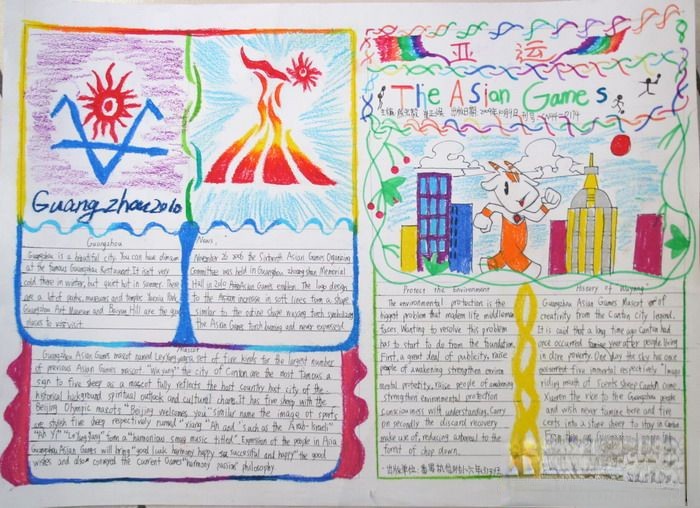 Guangzhou2010
Guangzhou
Guangzhou is a beautiful city. You can have dimsum
at the famous Guangzhou Restaurant. It isn't very
cold there in winter, but quite hot in summer. There
are a lot of parks, museums and temples. Yuexiu Park,
Guangzhou Art Museum and Baiyun Hill are the good
places to visit.
News:
November 26 2006 the Sixteenth Asian Games Organizing
Committee was held in Guangzhou zhongshan Memorial
Hall in 2010 Asian Games emblem. The logo design
to the Asian increase in soft lines form a shape
similar to the outline shape wuyang torch symbolizing
the Asian Games torch burning and never expressed.
Mascot
Guangzhou Asian Games mascot named Le yangyang a set of five kinds for the largest number
of previous Asian Games mascot. "Wu yang" the city of Canton are the most famous a
sign to five sheep as a mascot fully reflects the host country host city of the
historical background spiritual outlook and cultural charm. It has five sheep with the
Beijing Olympic mascots "Beijing welcomes you" similar name the image of sports
are stylish five sheep respectively named "xiang" "Ah and" such as the Arab-Israeli"
"Ah Yi" "Le Yang Yang" form a "harmonious smug music titled" Expression of the people in Asia
Guangzhou Asian Games will bring "good luck harmony happy successful and happy" the good
wishes and also conveyed the current Games "harmony passion" philosophy.
亚运
The Asian Games
主编: 出版日期: 2009年10月4日 刊号:
Protect the Environment
The environmental protection is the
biggest problem that modern life middleman
faces. Wanting to resolve this problem
has to start to do from the foundation.
First, a great deal of publicity, raise
people of awakening strengthen environ
mental protection, raise people of awakening
strengthen environmental protection
consciousness with understanding. Carry
on secondly the discard recovery
make use of, reducing
forest of chop down.
出版单位:
History of Wuyang
Guangzhou Asian Games Mascot of
creativity from the Canton city legend.
It is said that a long time ago Canton had
once occurred famine year after people living
in dire poverty. One day the sky has once
five immortal respectively
riding mouth of scents sheep Canton came
the rice to the Guangzhou people
and wish never famine here and five
cents into a stone sheep to stay in Canton